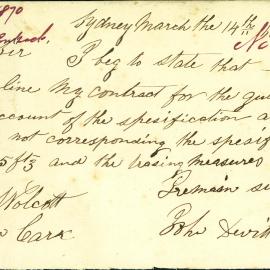 Sydney March the 14th
1870
Sir
I beg to state that I
line my contract for the
account of the spesification a
not corresponding the spesif
5 ft 3 and the rasing measures
I remain
Wolcott
Cark
John Devitt